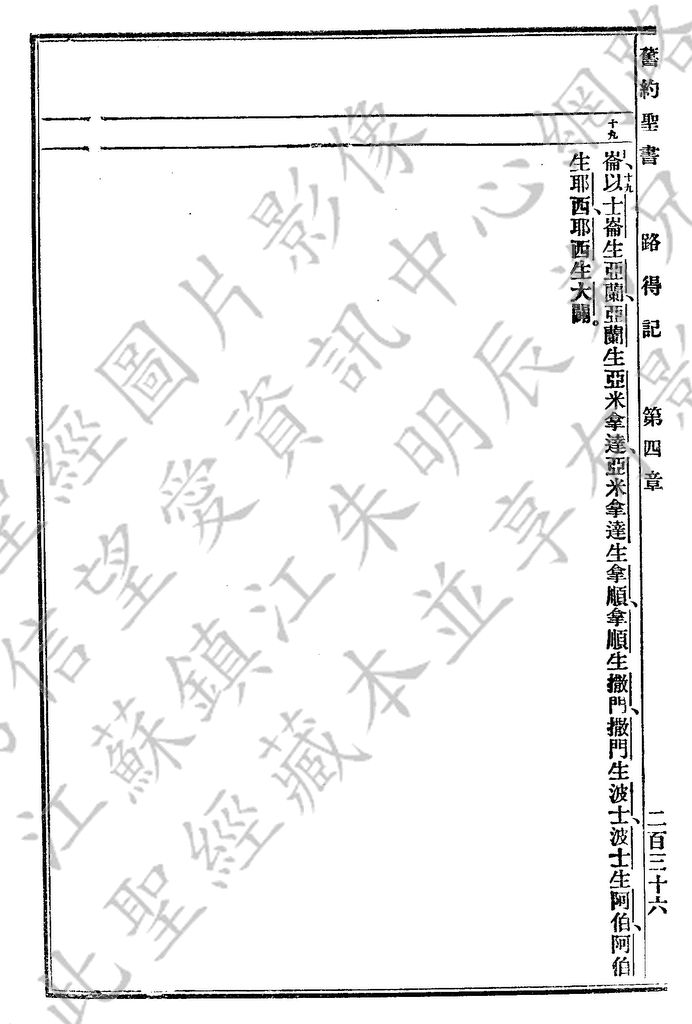 舊約聖書 路得記 第四章 二百三十六
十九
崙、十九以士崙生亞蘭、亞蘭生亞米拿達、亞米拿達生拿順、拿順生撒門、撒門生波士、波士生阿伯、阿伯
生耶西、耶西生大闢。
聖經圖片影像
信望愛資訊中心網路
江蘇鎮江朱明辰
此聖經藏本並享有影